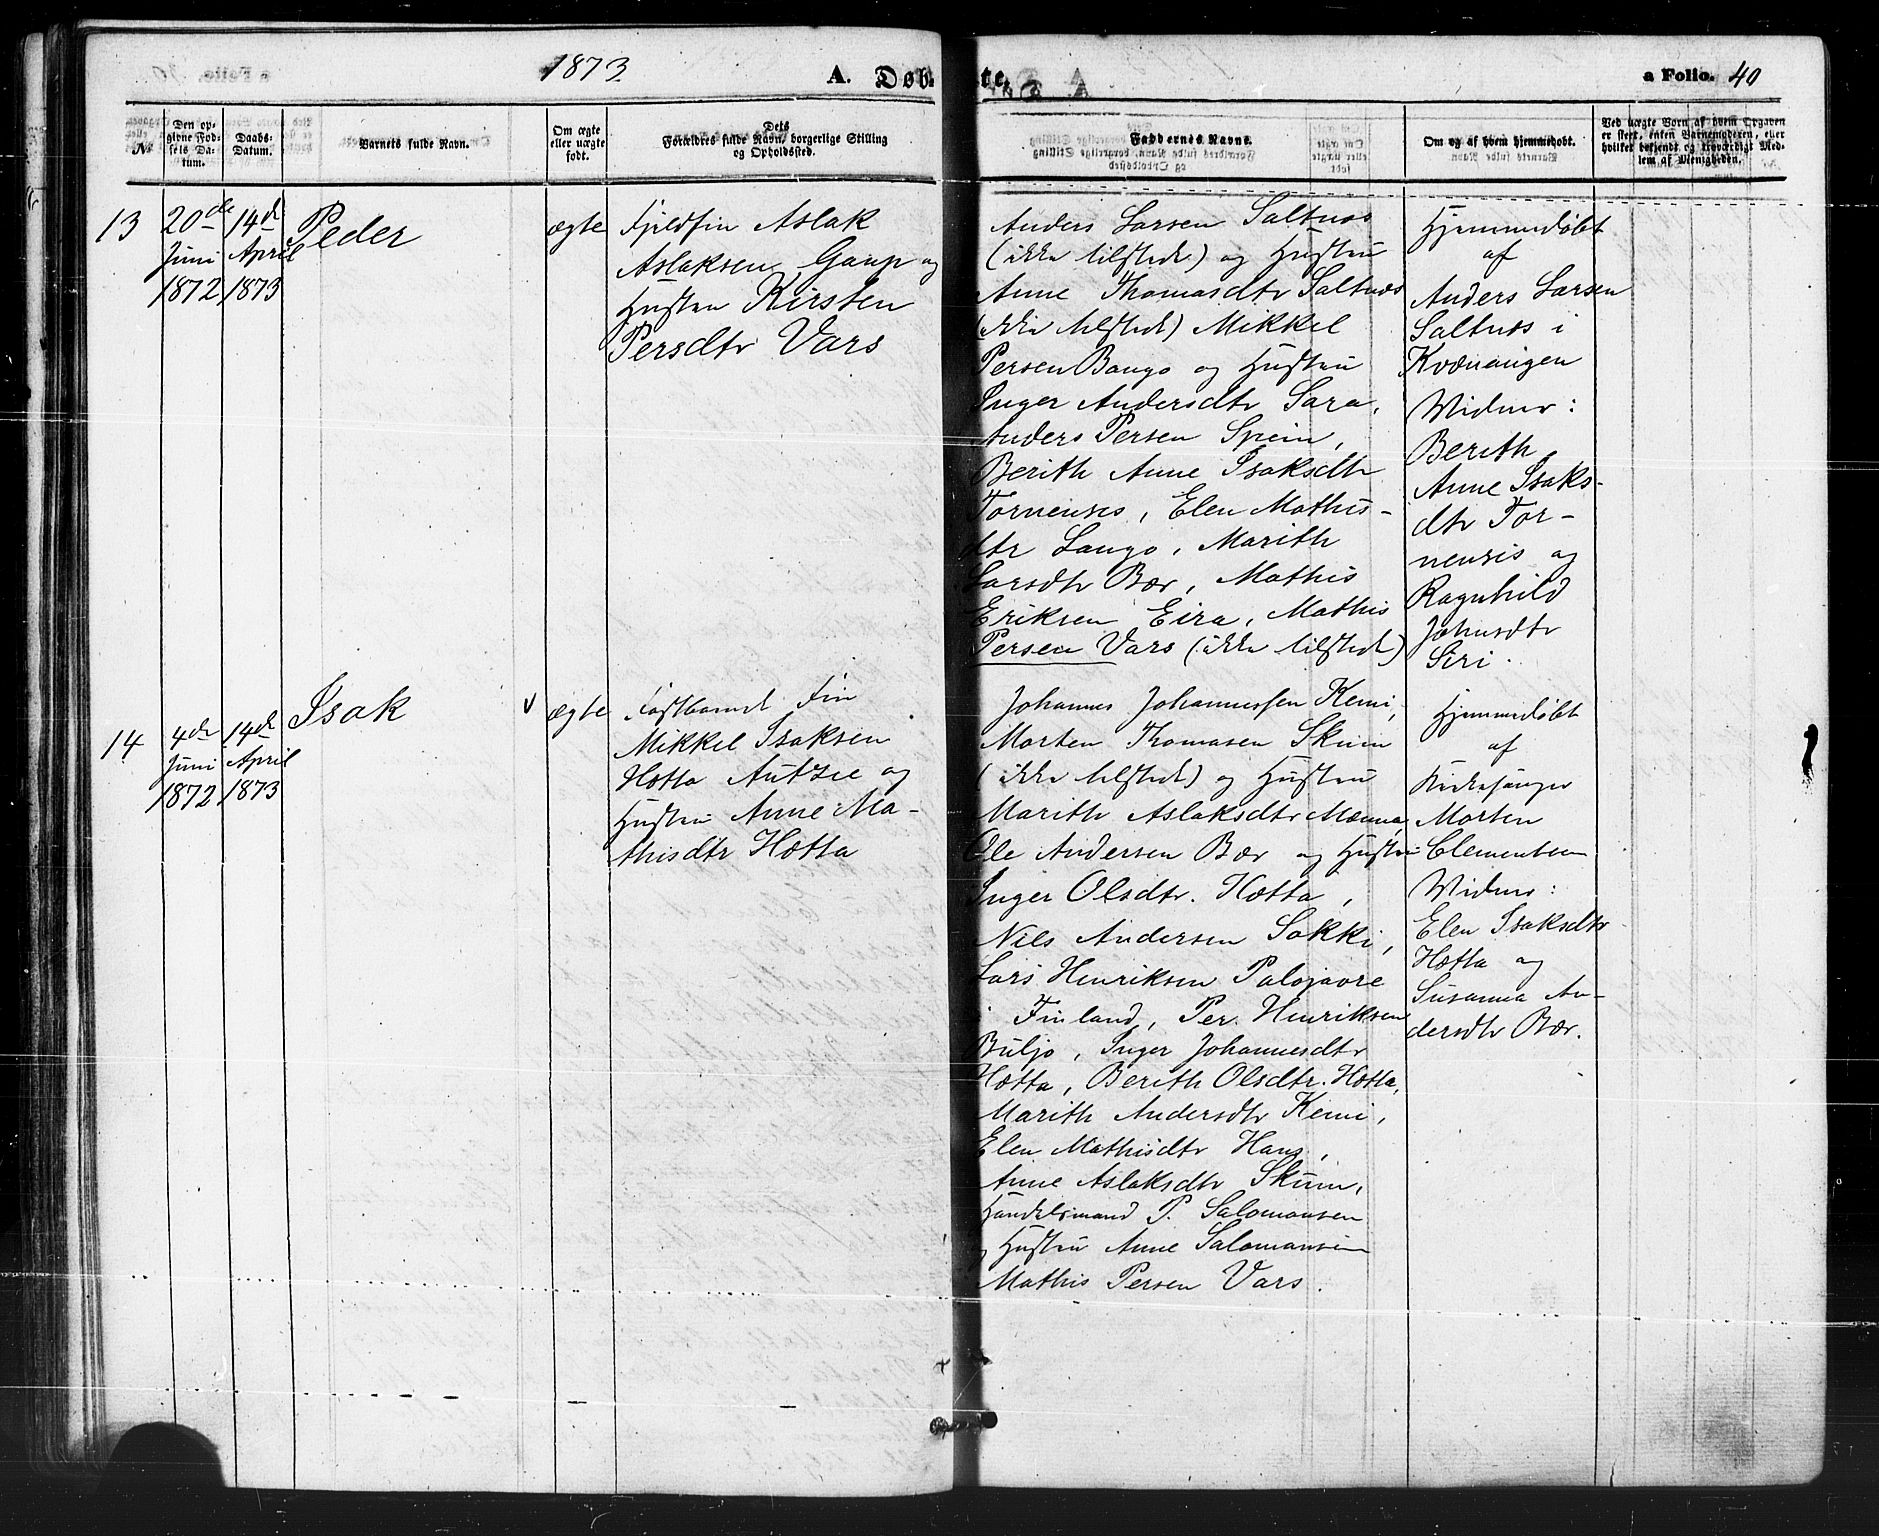 1873 A. Døb- te. a Folio. 40
No
Den op-
givne Fød-
sels Da-
tum.
Daabs-
Datum.
Barnets fulde Navn.
Om ægte
eller uægte
født.
Dets
Forældres fulde Navn, borgerlige Stilling
og Opholdssted.
Faddernes Navne.
Om og af hvem hjemmedøbt.
Ved uægte Børn af hvem Opgaven
er skeet, enten Barnemoderen, eller
hvilket bekjendt og troværdigt Med-
lem af Menigheden.
13
20de
Juni
1872
14de
April
1873
Peder
ægte
Fjeldfin Aslak
Aslaksen Gaup og
Hustru Kirsten
Persdtr Vars
Anders Larsen Saltnæs
(ikke tilstede) og Hustru
Anne Thomasdtr Saltnæs
(ikke tilstede) Mikkel
Persen Bango og Hustru
Inger Andersdtr Sara,
Anders Persen Spein,
Berith Anne Isaksdtr
Tornensis, Elen Mathis-
dtr Lango, Marith
Larsdtr Bær, Mathis
Eriksen Eira, Mathis
Persen Vars (ikke tilstede)
Hjemmedøbt
af
Anders Larsen
Saltnæs i
Kvænangen
Vidner:
Berith
Anne Isaks-
dtr Tor-
nensis og
Ragnhild
Johnsdtr
Siri.
14
4de
Juni
1872
14de
April
1873
Isak
v
ægte
Fastboende Fin
Mikkel Isaksen
Hætta Autzie og
Hustru Anne Ma-
thisdtr Hætta
Johannes Johannessen Kemi,
Morten Thomasen Skum
(ikke tilstede) og Hustru
Marith Aslaksdtr Mænna,
Ole Andersen Bær og Hustru
Inger Olsdtr. Hætta,
Nils Andersen Sokki,
Lars Henriksen Palojavre
i Finland, Per Henriksen
Buljo, Inger Johannesdtr
Hætta, Berith Olsdtr. Hætta,
Marith Andersdtr Kemi,
Elen Mathisdtr Hans,
Anne Aslaksdtr Skum,
Handelsmand P. Salomonsen
og Hustru Anne Salomonsen
Mathis Persen Vars.
Hjemmedøbt
af
Kirkesanger
Morten
Clementsen
Vidner:
Elen Isaksdtr
Hætta og
Susanna An-
dersdtr Bær.